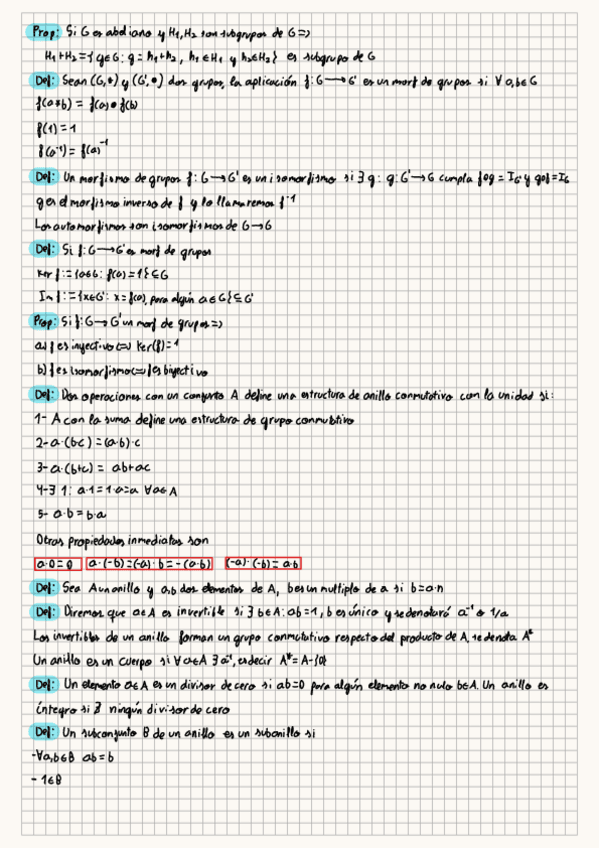 Prop: Si G es abeliano y H₁,H₂ son subgrupos de G =>
H₁+H₂={g∈G: g= h₁+h₂, h₁∈H₁ y h₂∈H₂} es subgrupo de G
Def: Sean (G,*) y (G',•) dos grupos, la aplicación f: G→G' es un morf de grupos si ∀ a,b∈G
f(a*b) = f(a)•f(b)
f(1)=1
f(a⁻¹) = f(a)⁻¹
Def: Un morfismo de grupos f: G→G' es un isomorfismo si ∃ g: g: G'→G cumpla f∘g = I_G' y g∘f=I_G
g es el morfismo inverso de f y lo llamaremos f⁻¹
Los automorfismos son isomorfismos de G→G
Def: Si f: G→G' es morf de grupos
Ker f:={a∈G: f(a)=1}⊆G
Im f:={x∈G': x=f(a), para algún a∈G}⊆G'
Prop: Si f: G→G' un morf de grupos =>
a) f es inyectivo <=> Ker(f)=1
b) f es isomorfismo <=> f es biyectivo
Def: Dos operaciones con un conjunto A define una estructura de anillo conmutativo con la unidad si:
1- A con la suma define una estructura de grupo conmutativo
2- a·(b·c) = (a·b)·c
3- a·(b+c) = ab+ac
4- ∃ 1: a·1=1·a=a ∀a∈A
5- a·b = b·a
Otras propiedades inmediatas son
a·0=0 a·(-b)=(-a)·b=-(a·b) (-a)·(-b)= a·b
Def: Sea A un anillo y a,b dos elementos de A, b es un multiplo de a si b=a·n
Def: Diremos que a∈A es invertible si ∃ b∈A: ab=1, b es único y se denotará a⁻¹ o 1/a
Los invertibles de un anillo forman un grupo conmutativo respecto del producto de A, se denota A*
Un anillo es un cuerpo si ∀ a∈A ∃ a⁻¹, es decir A*= A-{0}
Def: Un elemento a∈A es un divisor de cero si ab=0 para algún elemento no nulo b∈A. Un anillo es
íntegro si ∄ ningún divisor de cero
Def: Un subconjunto B de un anillo es un subanillo si
-∀a,b∈B ab=b
- 1∈B